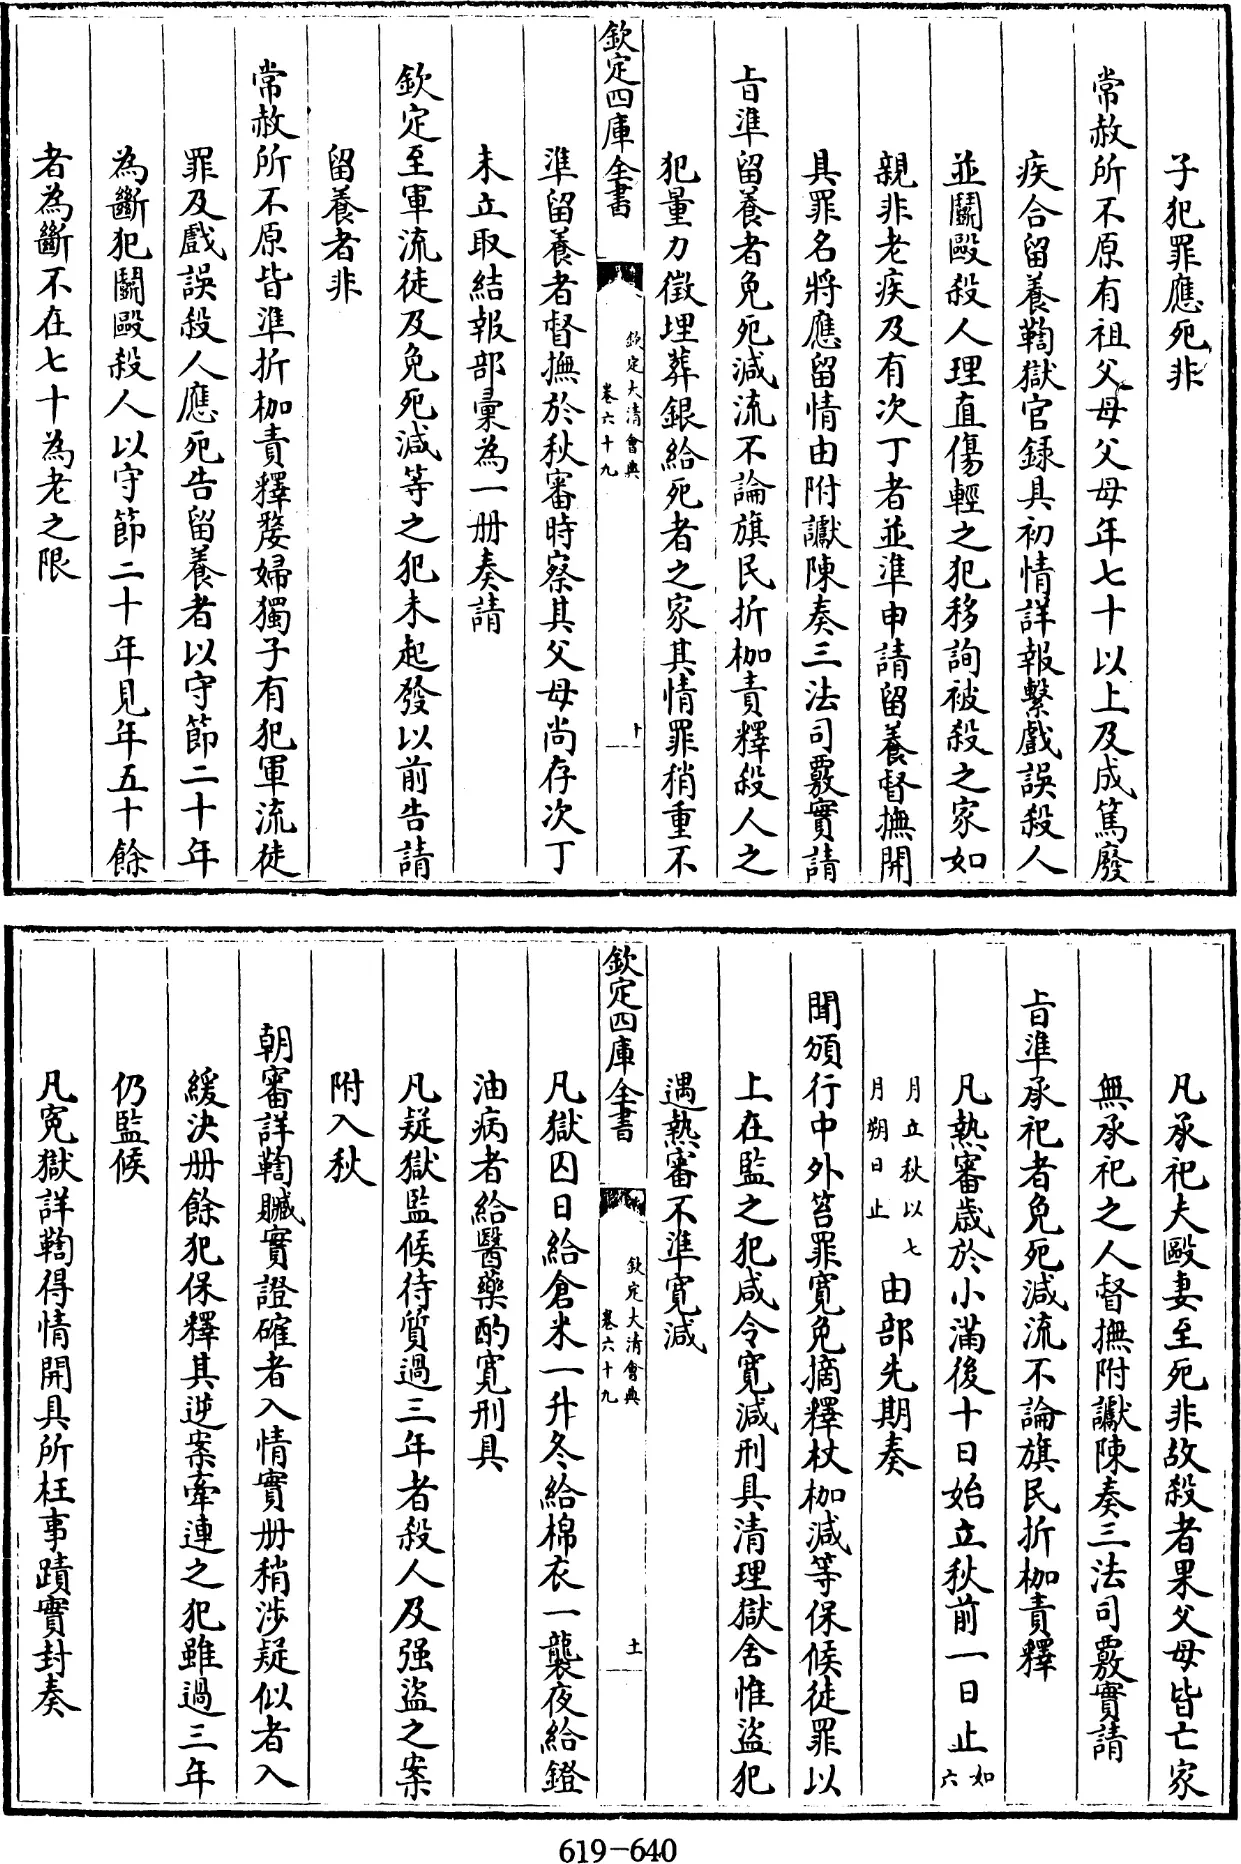 子犯罪應死非
常赦所不原有祖父母父母年七十以上及成篤廢
疾合留養鞫獄官録具初情詳報繫戲誤殺人
並鬭毆殺人理直傷輕之犯移詢被殺之家如
親非老疾及有次丁者並準申請留養督撫開
具罪名將應留情由附讞陳奏三法司覈實請
㫖準留養者免死減流不論旗民折枷責釋殺人之
犯量力徵埋葬銀給死者之家其情罪稍重不
欽定四庫全書
欽定大清會典
卷六十九
十
準留養者督撫於秋審時察其父母尚存次丁
未立取結報部彙為一册奏請
欽定至軍流徒及免死減等之犯未起發以前告請
留養者非
常赦所不原皆準折枷責釋嫠婦獨子有犯軍流徒
罪及戲誤殺人應死告留養者以守節二十年
為斷犯鬭毆殺人以守節二十年見年五十餘
者為斷不在七十為老之限
凡承祀夫毆妻至死非故殺者果父母皆亡家
無承祀之人督撫附讞陳奏三法司覈實請
㫖準承祀者免死減流不論旗民折枷責釋
凡熱審歲於小滿後十日始立秋前一日止如六
月立秋以七
月朔日止
由部先期奏
聞頒行中外笞罪寛免摘釋杖枷減等保候徒罪以
上在監之犯咸令寛減刑具清理獄舍惟盜犯
遇熱審不準寛減
欽定四庫全書
欽定大清會典
卷六十九
十一
凡獄囚日給倉米一升冬給棉衣一襲夜給鐙
油病者給醫藥酌寛刑具
凡疑獄監候待質過三年者殺人及强盜之案
附入秋
朝審詳鞫贓實證確者入情實册稍涉疑似者入
緩決册餘犯保釋其逆案牽連之犯雖過三年
仍監候
凡寃獄詳鞫得情開具所枉事蹟實封奏
619-640